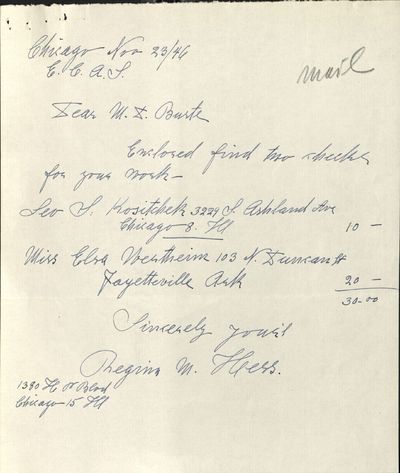 Chicago Nov 23/46
E. C. A. S.
mail
Dear M. D. Burte
Enclosed find two checks
for your work—
Leo S. Kositchek 3229 S. Ashland Ave
Chicago 8. Ill 10 —
Miss Elsa Wertheim 103 N. Duncan St
Fayetteville Ark 20 —
30.00
Sincerely yours
Regina M. Hess.
1380 H Blvd
Chicago 15 Ill